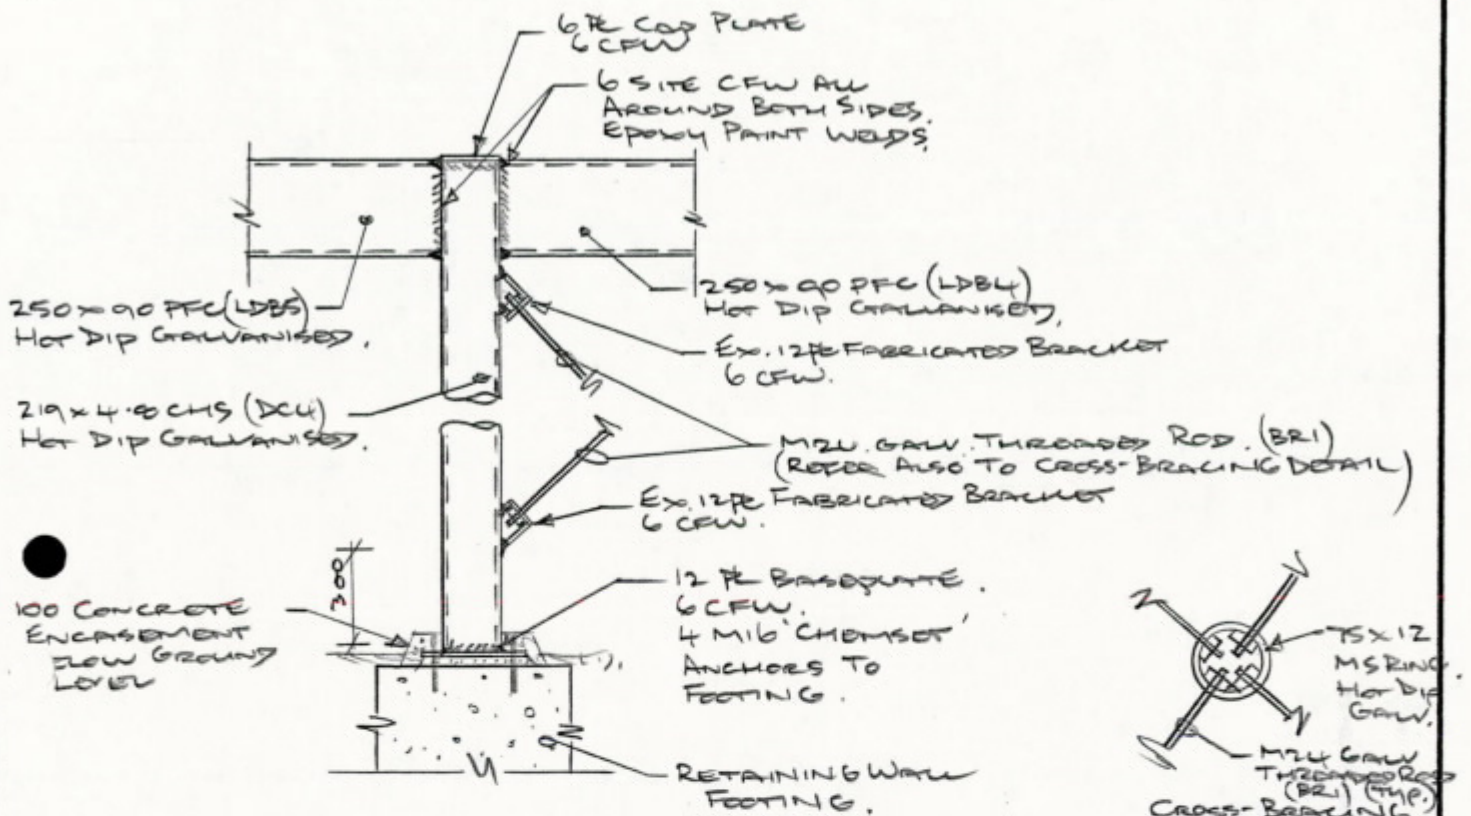 6 PL CAP PLATE
6 CFW
6 SITE CFW ALL
AROUND BOTH SIDES.
EPOXY PAINT WELDS.
250 x 90 PFC (LDB5)
HOT DIP GALVANISED.
250 x 90 PFC (LDB4)
HOT DIP GALVANISED.
EX. 12 PL FABRICATED BRACKET
6 CFW.
219 x 4.8 CHS (DC4)
HOT DIP GALVANISED.
M24 GALV. THREADED ROD. (BR1)
(REFER ALSO TO CROSS-BRACING DETAIL)
EX. 12 PL FABRICATED BRACKET
6 CFW.
300
100 CONCRETE
ENCASEMENT
ELOW GROUND
LEVEL
12 PL BASEPLATE.
6 CFW.
4 M16 'CHEMSET'
ANCHORS TO
FOOTING.
RETAINING WALL
FOOTING.
75 x 12
MS RING.
HOT DIP
GALV.
M24 GALV
THREADED ROD
(BR1) (TYP.)
CROSS-BRACING